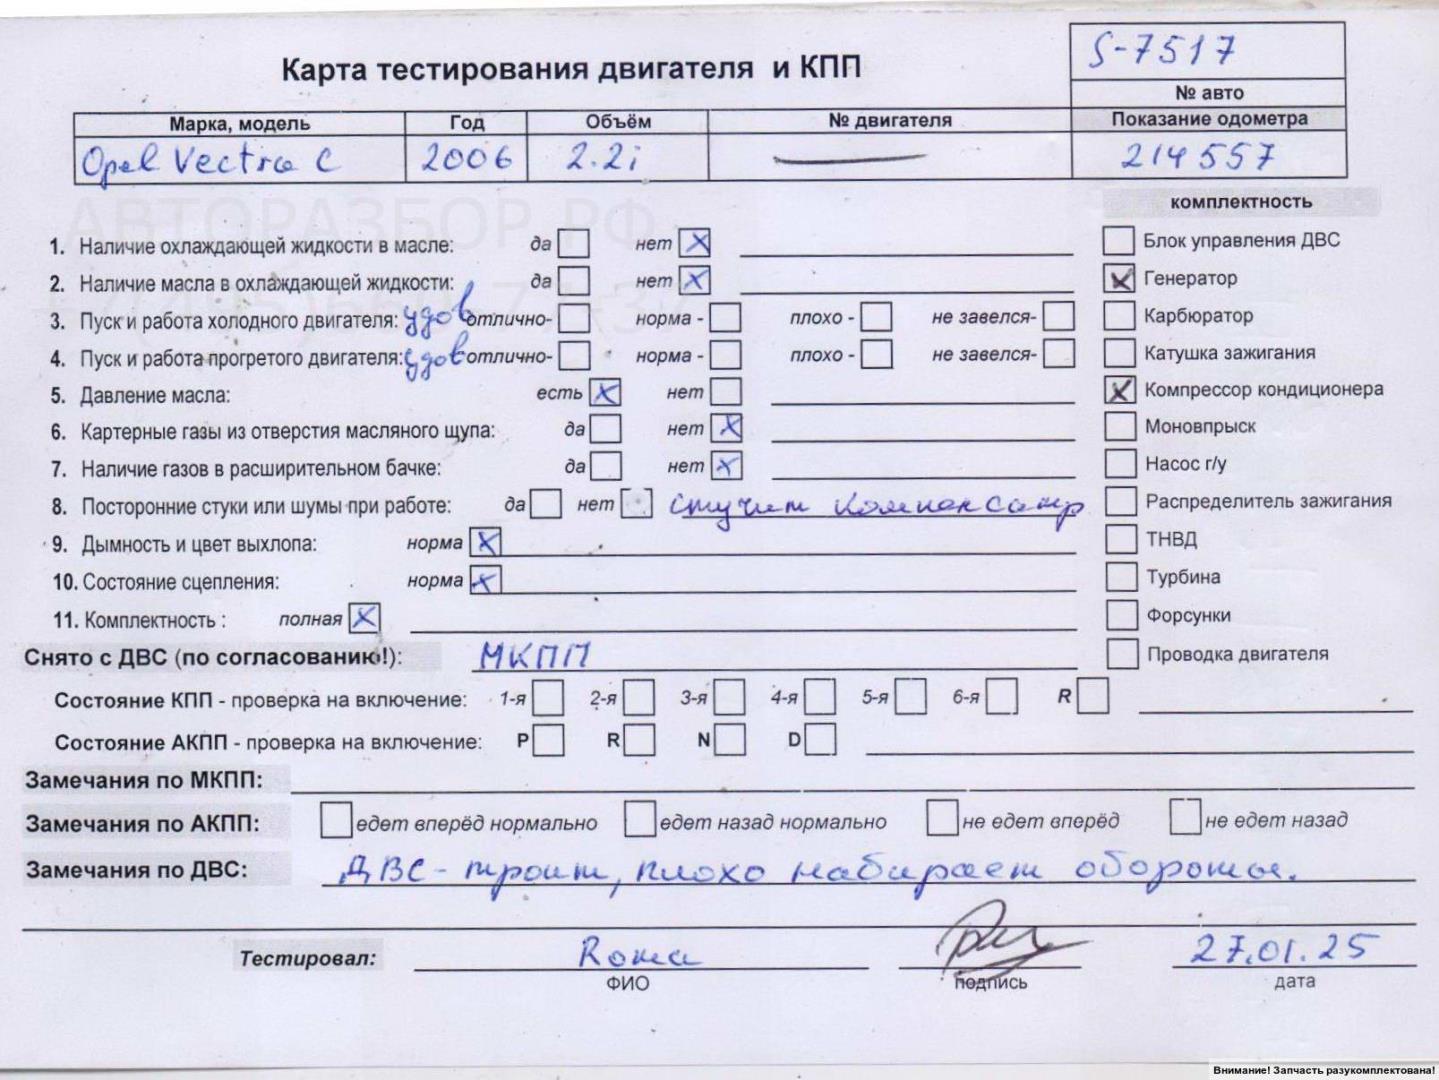 S-7517
Карта тестирования двигателя и КПП
№ авто
Марка, модель Год Объём № двигателя Показание одометра
Opel Vectra C 2006 2.2i — 214557
АВТОРАЗБОР.РФ
комплектность
1. Наличие охлаждающей жидкости в масле: да нет X Блок управления ДВС
2. Наличие масла в охлаждающей жидкости: да нет X Генератор X
3. Пуск и работа холодного двигателя: удов отлично- норма - плохо - не завелся- Карбюратор
4. Пуск и работа прогретого двигателя: удов отлично- норма - плохо - не завелся- Катушка зажигания
5. Давление масла: есть X нет Компрессор кондиционера X
6. Картерные газы из отверстия масляного щупа: да нет X Моновпрыск
7. Наличие газов в расширительном бачке: да нет X Насос г/у
8. Посторонние стуки или шумы при работе: да нет стучит компенсатр Распределитель зажигания
9. Дымность и цвет выхлопа: норма X ТНВД
10. Состояние сцепления: норма X Турбина
11. Комплектность : полная X Форсунки
Снято с ДВС (по согласованию!): МКПП Проводка двигателя
Состояние КПП - проверка на включение: 1-я 2-я 3-я 4-я 5-я 6-я R
Состояние АКПП - проверка на включение: P R N D
Замечания по МКПП:
Замечания по АКПП: едет вперёд нормально едет назад нормально не едет вперёд не едет назад
Замечания по ДВС: ДВС - троит, плохо набирает обороты.
Тестировал: Рома 27.01.25
ФИО подпись дата
Внимание! Запчасть разукомплектована!